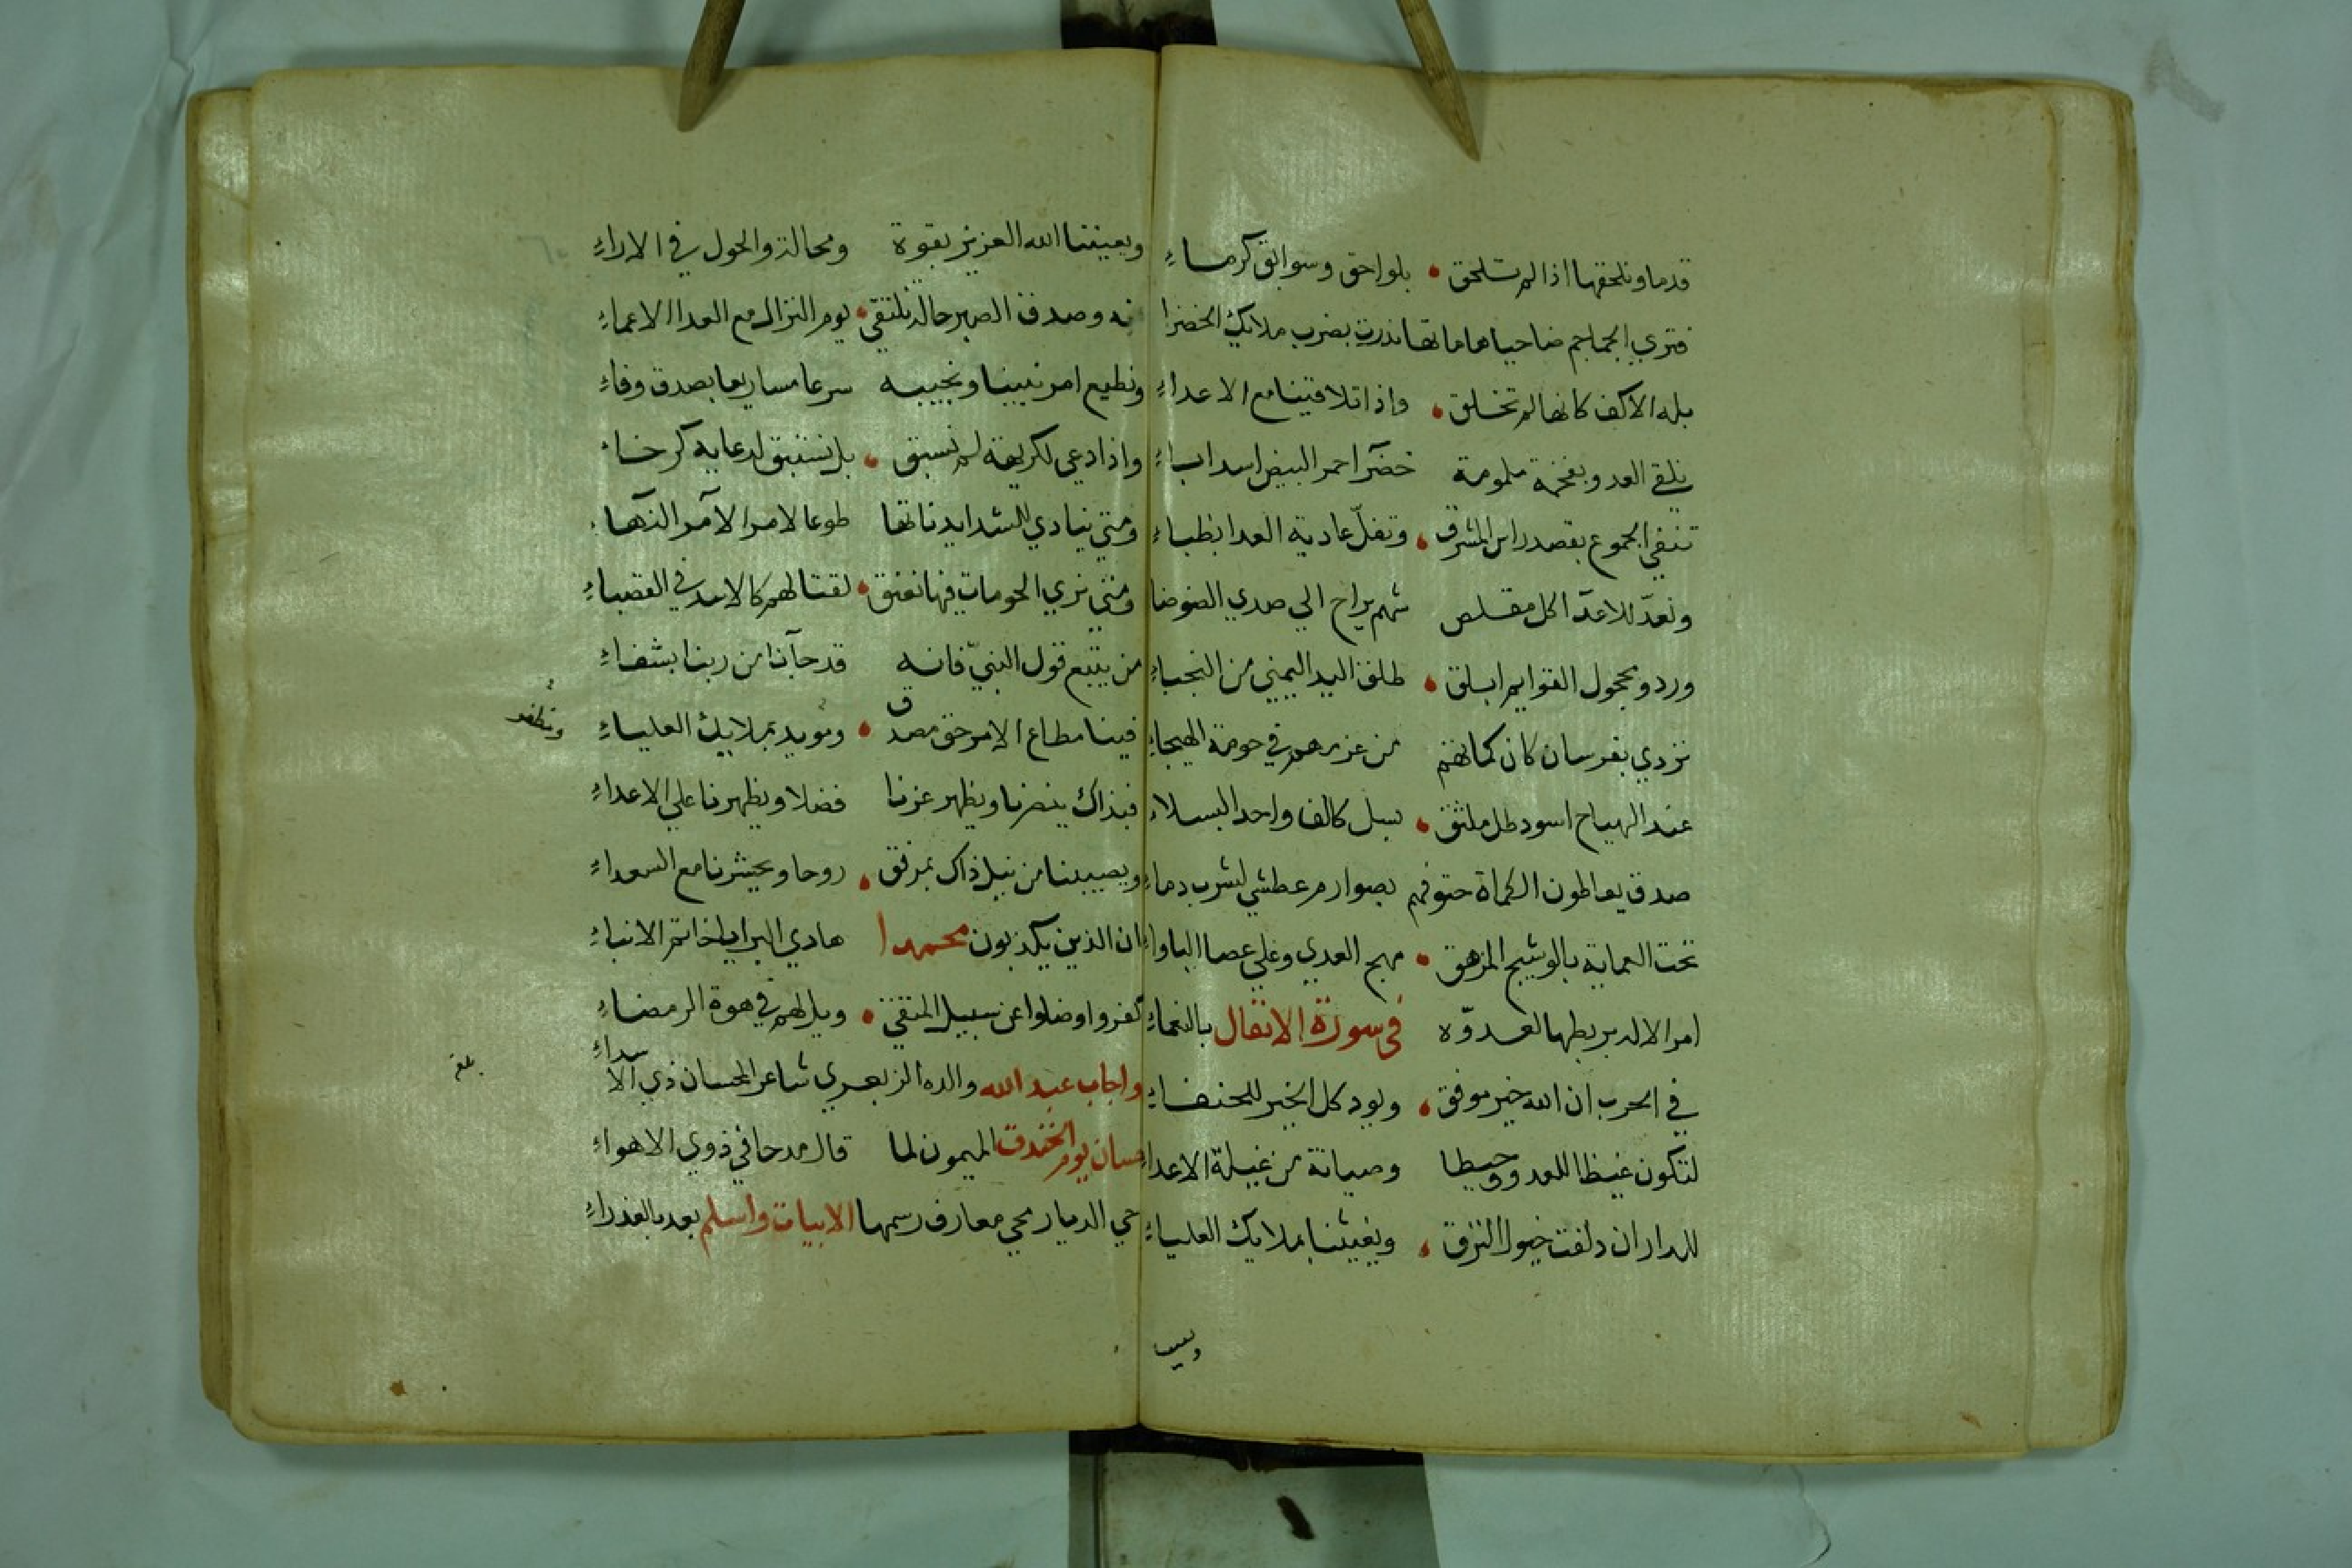 قدما ونلحقها اذا لم تلحق • بلواحق وسوابق كرماء
فتري الجماجم ضاحيا هاماتها نذرت بضرب ملايك الخضرا
بله الاكف كانها لم تخلق • واذا تلاقينا مع الاعداء
نلقي العدو بفخمة ملمومة خضرآ احمر البيض اسد اباء
تنفي الجموع بقصد راس المشرق • وتفل عادية العدا بظباء
ونعدّ للاعدّا كل مقلص شهم يراح الي صدي الضوضا
ورد ومحجول القوايم ابلق • طلق اليد اليمني من النجباء
نردي بفرسان كان كماتهم من عزمهم في حومة الهيجاء
عند الهياج اسود طل ملثق • بسل كالف واحد البسلاء
صدق يعاطون الكماة حتوفهم بصوارم عطشي لشرب دماء
تحت العماية بالوشيج المزهق • مهج العدي وعلي عصا الباواء
امر الاله بربطها لعدوّه في سورة الانفال بالنعماء
في الحرب ان الله خير موفق • ويود كل الخير للحنفاء
لتكون غيظا للعدو وحيطا وصيانة من غيلة الاعدا
للدار ان دلفت خيول النزق • ويغيثنا بملايك العلياء
ويعيننا
ويعيننا الله العزيز بقوة ومحالة والحول في الاراء
نه وصدق الصبر حالة نلتقي • يوم النزال مع العدا الاعماء
ونطيع امر نبينا ونجيبه سرعا مساريعا بصدق وفاء
واذا دعي لكريهة لم نسبق • بل نستبق لدعايه كرخاء
ومتي ينادي للشدايد ناتها طوعا لامر الآمر النهاء
ومتي نري الحومات فيها نعنق • لقتالهم كالاسد في القصباء
من يتبع قول النبيّ فانه قد جآنا من ربنا بشفاء
فينا مطاع الامر حق مصدق • ومويد بملايك العلياء
فبذاك ينصرنا ويظهر عزنا فضلا ويظهرنا علي الاعداء
ويصيبنا من نيل ذاك بمرفق • روحا ويحيشرنا مع السعداء
ان الذين يكذبون محمدا هادي البرايا خاتم الانباء
كفروا وضلوا عن سبيل المتقي • ويل لهم في هوة الرمضاء
واجاب عبد الله والده الزبعري شاعر المحسان ذي الاسداء
حسان يوم الخندق الميمون لما قال مدحا في ذوي الاهواء
حي الديار محي معارف رسمها الابيات واسلم بعد بالغذراء